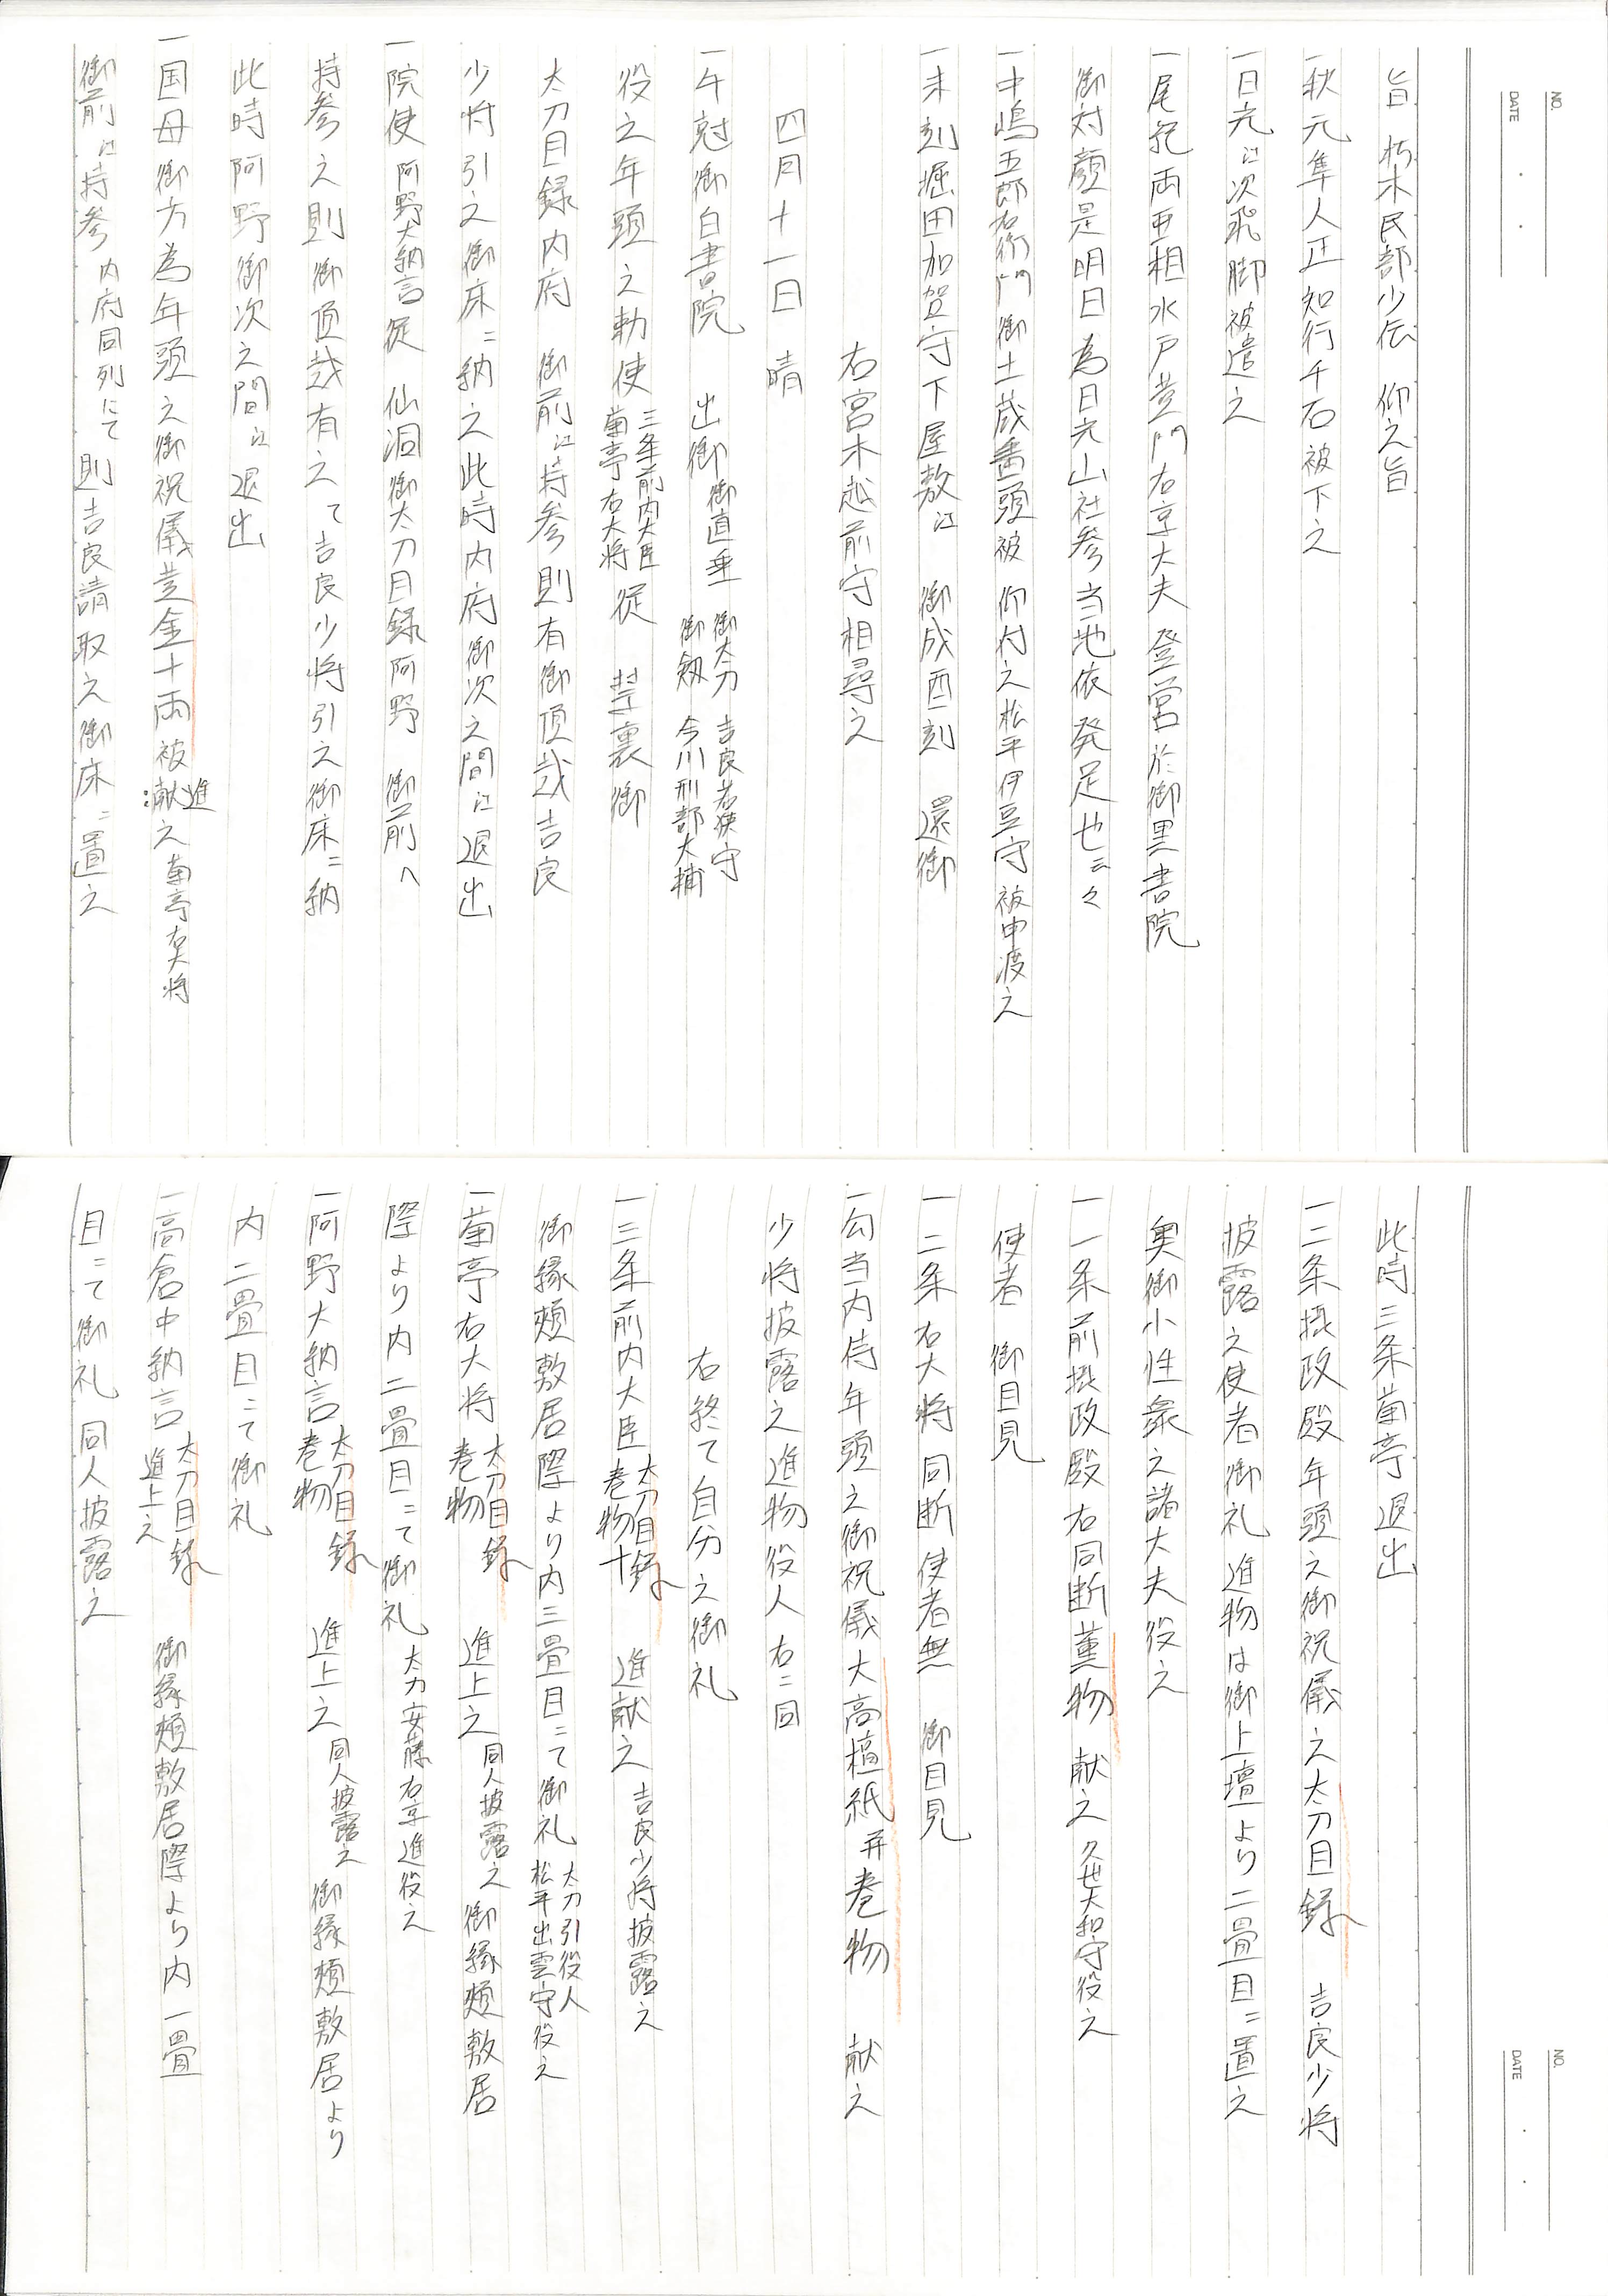 NO.
DATE
旨 朽木民部少伝 仰之旨
一秋元隼人正知行千石被下之
一日光江次飛脚被遣之
一尾紀両亜相水戸黄門右京大夫 登営於御黒書院
御対顔是明日為日光山社参当地依発足也云々
一中嶋五郎右衛門 御土蔵番頭被 仰付之松平伊豆守被申渡之
一未刻堀田加賀守下屋敷江 御成酉刻 還御
右宮木越前守相尋之
四月十一日 晴
一午尅御白書院 出御 御直垂 御太刀 吉良若狭守 御剱 今川刑部大輔
役之年頭之勅使 三条前内大臣 菊亭右大将 従 禁裏御
太刀目録内府 御前江持参則有御頂戴吉良
少将引之御床ニ納之此時内府御次之間江退出
一院使阿野大納言従 仙洞御太刀目録阿野 御前へ
持参之則御頂戴有之て吉良少将引之御床ニ納
此時阿野御次之間江退出
一国母御方為年頭之御祝儀黄金十両被献進之菊亭右大将
御前江持参 内府同列にて 則吉良請取之御床ニ置之
NO.
DATE
此時三条菊亭退出
一二条摂政殿年頭之御祝儀之太刀目録 吉良少将
披露之使者御礼進物は御上壇より二畳目ニ置之
奥御小性衆之諸大夫役之
一一条前摂政殿右同断薫物 献之久世大和守役之
使者 御目見
一二条右大将同断使者無 御目見
一勾当内侍年頭之御祝儀大高檀紙并巻物 献之
少将披露之進物役人右ニ同
右終て自分之御礼
一三条前内大臣 太刀目録 巻物十 進献之 吉良少将披露之
御縁頬敷居際より内三畳目ニて御礼 太刀引役人 松平出雲守役之
一菊亭右大将 太刀目録 巻物 進上之 同人披露之 御縁頬敷居
際より内二畳目ニて御礼 太刀安藤右京進役之
一阿野大納言 太刀目録 巻物 進上之 同人披露之 御縁頬敷居より
内二畳目ニて御礼
一高倉中納言 太刀目録 進上之 御縁頬敷居際より内一畳
目ニて御礼 同人披露之